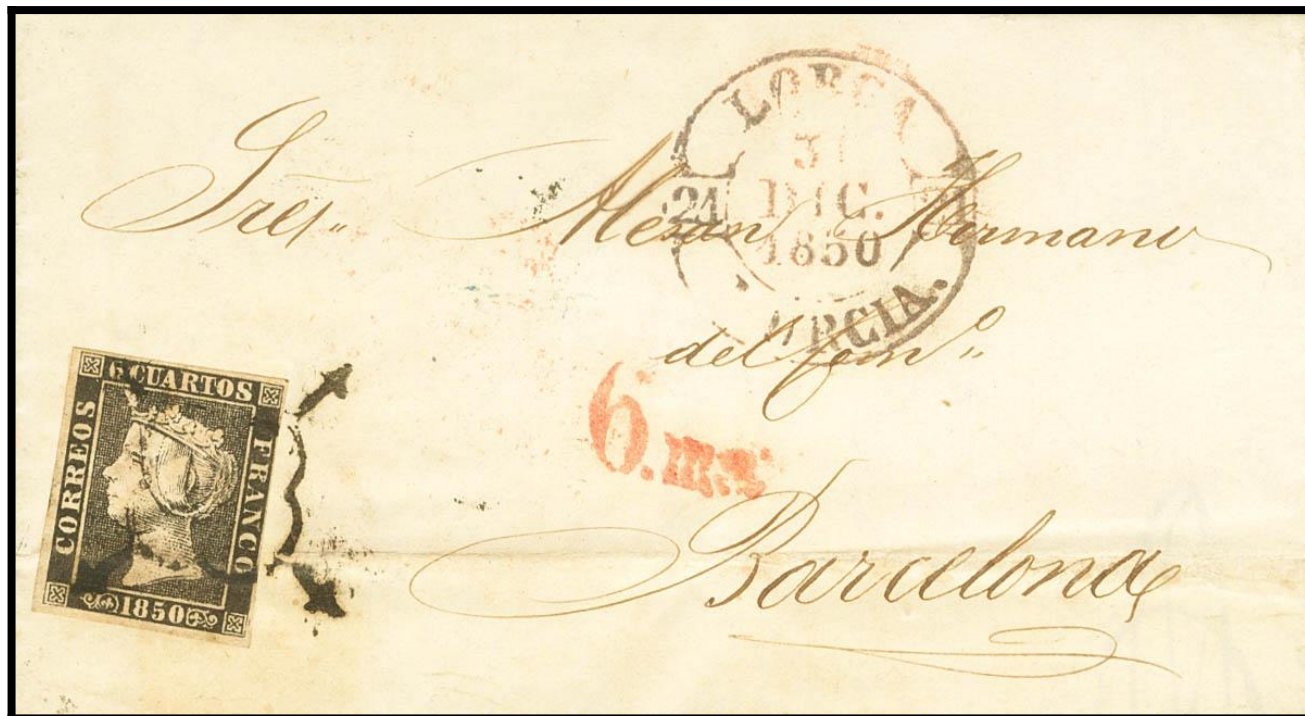 LORCA
3
DIC.
1850
21
MURCIA.
Sres Hermano
del Comº
6.ms
Barcelona
6 CUARTOS
CORREOS
FRANCO
1850